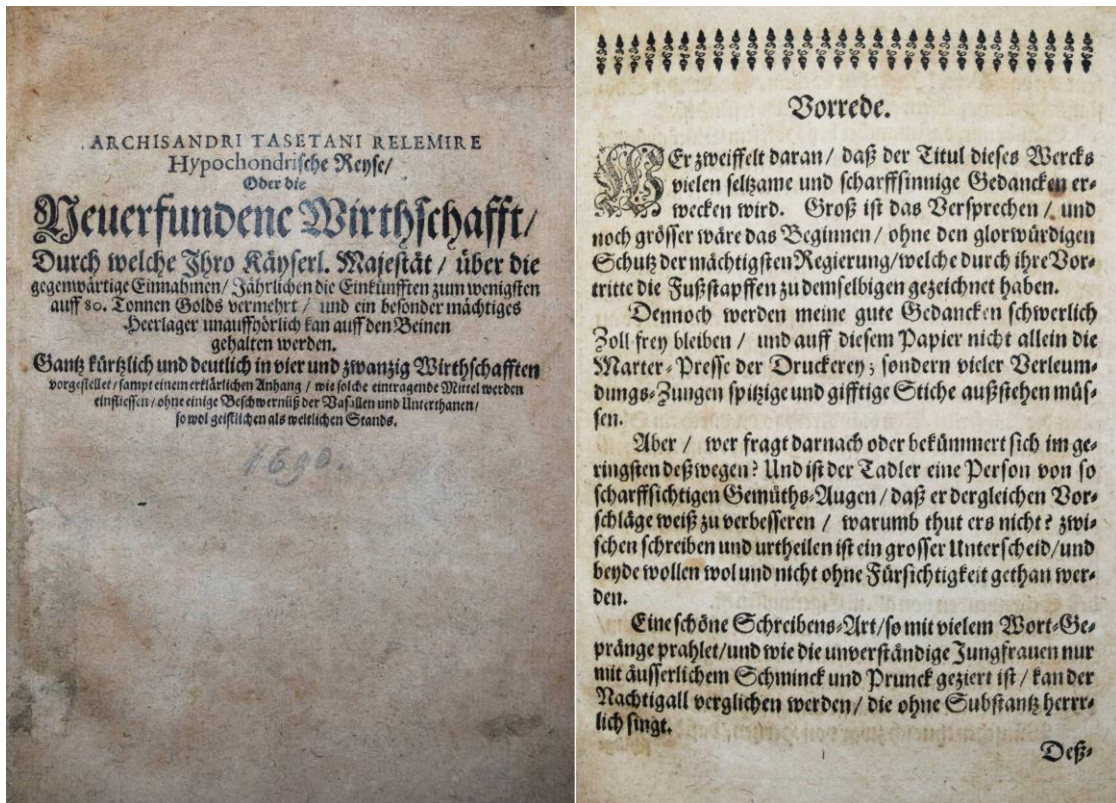 ARCHISANDRI TASETANI RELEMIRE
Hypochondrische Reyse/
Oder die
Neuerfundene Wirthschafft/
Durch welche Ihro Käyserl. Majestät / über die
gegenwärtige Einnahmen/ Jährlichen die Einkünfften zum wenigsten
auff 80. Tonnen Golds vermehrt / und ein besonder mächtiges
Heerlager unauffhörlich kan auff den Beinen
gehalten werden.
Gantz kürtzlich und deutlich in vier und zwanzig Wirthschafften
vorgestellet/ sampt einem erklärlichen Anhang / wie solche eintragende Mittel werden
einfliessen/ ohne einige Beschwernüß der Vasallen und Unterthanen/
so wol geistlichen als weltlichen Stands.
Vorrede.
WEr zweiffelt daran/ daß der Titul dieses Wercks
vielen seltzame und scharffsinnige Gedancken er-
wecken wird. Groß ist das Versprechen / und
noch grösser wäre das Beginnen / ohne den glorwürdigen
Schutz der mächtigsten Regierung/ welche durch ihre Vor-
tritte die Fußstapffen zu demselbigen gezeichnet haben.
Dennoch werden meine gute Gedancken schwerlich
Zoll frey bleiben / und auff diesem Papier nicht allein die
Marter-Presse der Druckerey; sondern vieler Verleum-
dungs-Zungen spitzige und gifftige Stiche außstehen müs-
sen.
Aber / wer fragt darnach oder bekümmert sich im ge-
ringsten deßwegen? Und ist der Tadler eine Person von so
scharffsichtigen Gemüths-Augen / daß er dergleichen Vor-
schläge weiß zu verbesseren / warumb thut ers nicht? zwi-
schen schreiben und urtheilen ist ein grosser Unterscheid/ und
beyde wollen wol und nicht ohne Fürsichtigkeit gethan wer-
den.
Eine schöne Schreibens-Art/ so mit vielem Wort-Ge-
pränge prahlet/ und wie die unverständige Jungfrauen nur
mit äusserlichem Schminck und Prunck geziert ist / kan der
Nachtigall verglichen werden/ die ohne Substantz herrr-
lich singt.
Deß-